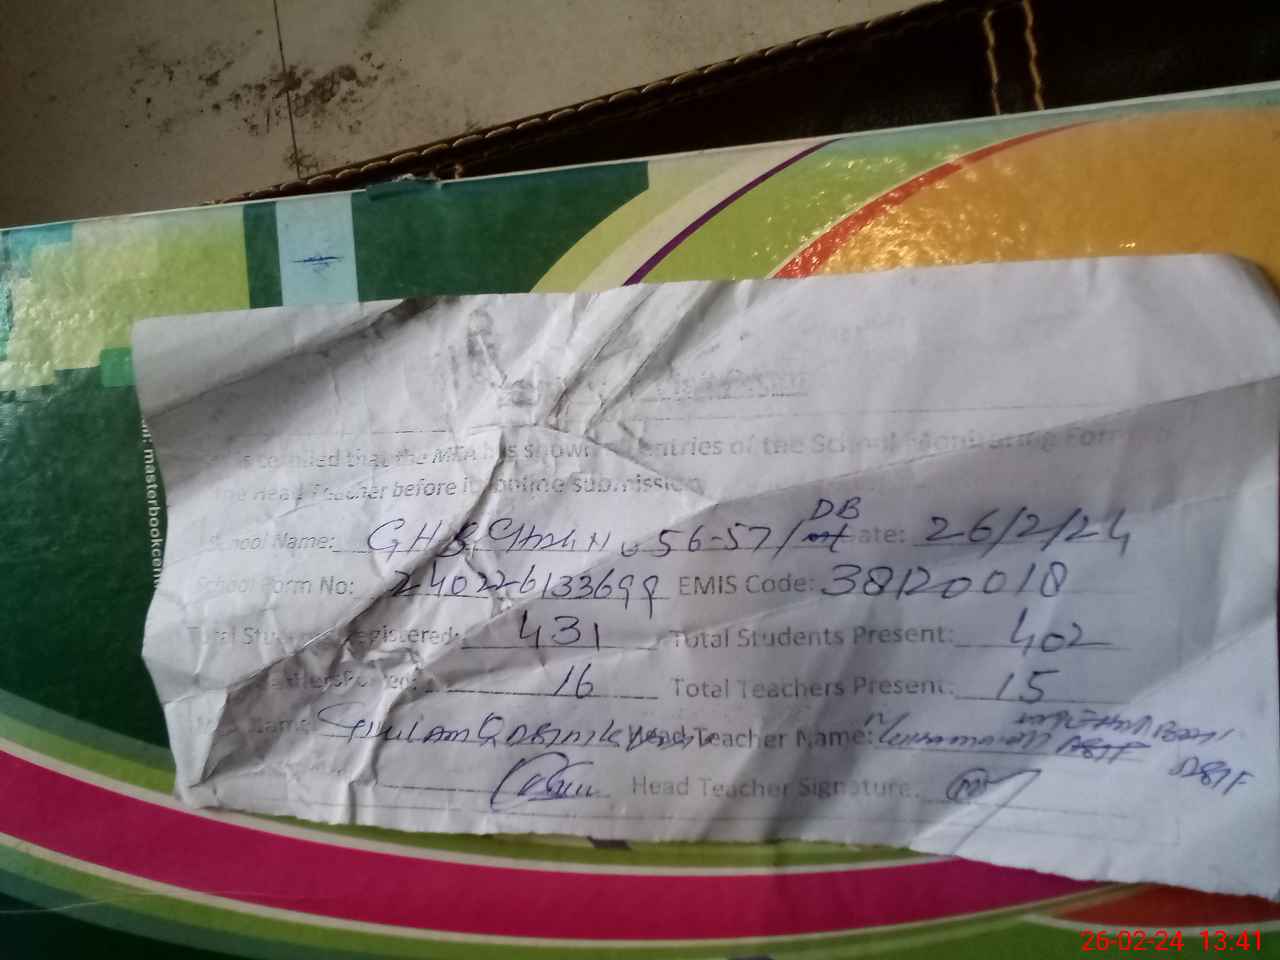 is certified that the MEA has shown entries of the School Monitoring Form
the Head Teacher before its online submission
School Name: GHS Chak No 56-57/DB Date: 26/2/24
School Form No: 240226133699 EMIS Code: 38120018
Total Students Registered: 431 Total Students Present: 402
16 Total Teachers Present: 15
Name: Ghulam Head Teacher Name: Muhammad
Head Teacher Signature:
masterbookcen
26-02-24 13:41